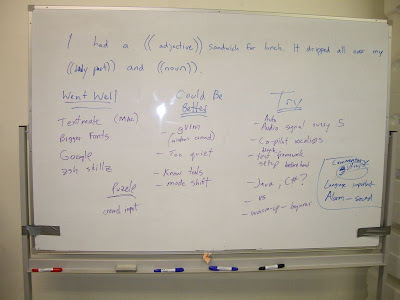 I had a ((adjective)) sandwich for lunch. It dripped all over my
((body part)) and ((noun)).
Went Well
Textmate (Mac)
Bigger Fonts
Google
zsh skillz
Puzzle
crowd input
Could Be
Better
- gvim
- Too quiet
- Know tools
- mode shift
Try
- Auto
Audio signal every 5
- Co-pilot
- test framework
setup beforehand
- Java, C#?
- vs
- warm-up - beginner
Language important
Alarm - sound